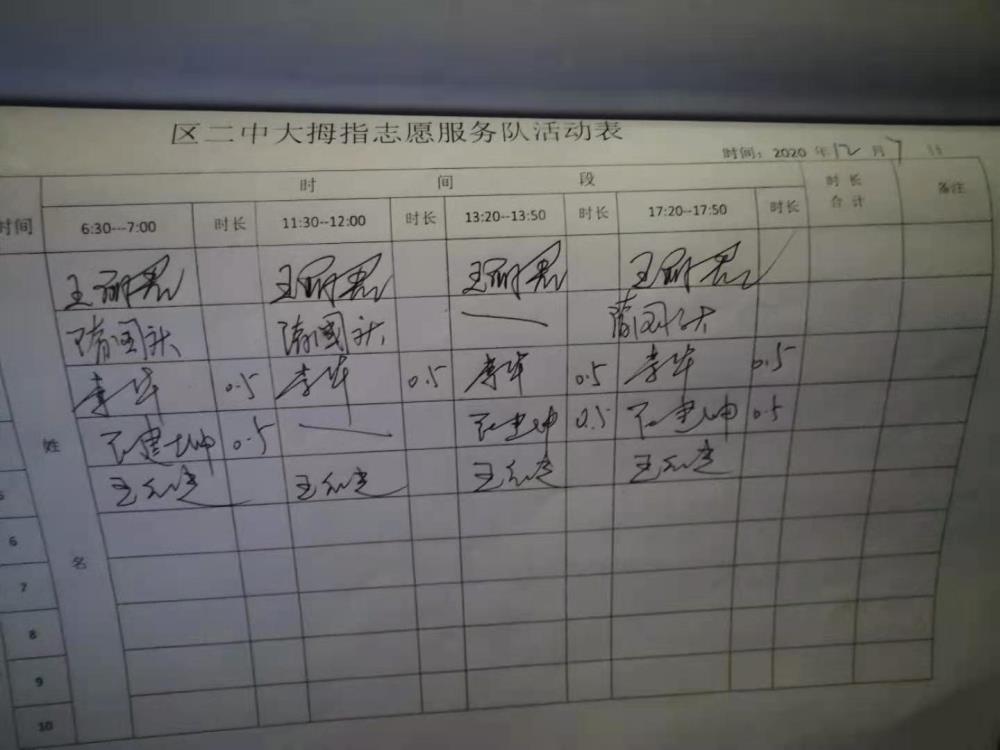 区二中大拇指志愿服务队活动表
时间：2020 年 12 月 7 日
时间 时 间 段 时长合计 备注
6:30---7:00 时长 11:30--12:00 时长 13:20--13:50 时长 17:20--17:50 时长
姓名
王丽君 王丽君 王丽君 王丽君
隋国 隋国 — 隋国
李华 0.5 李华 0.5 李华 0.5 李华 0.5
石建坤 0.5 — 石建坤 0.5 石建坤 0.5
王 王 王 王
5
6
7
8
9
10